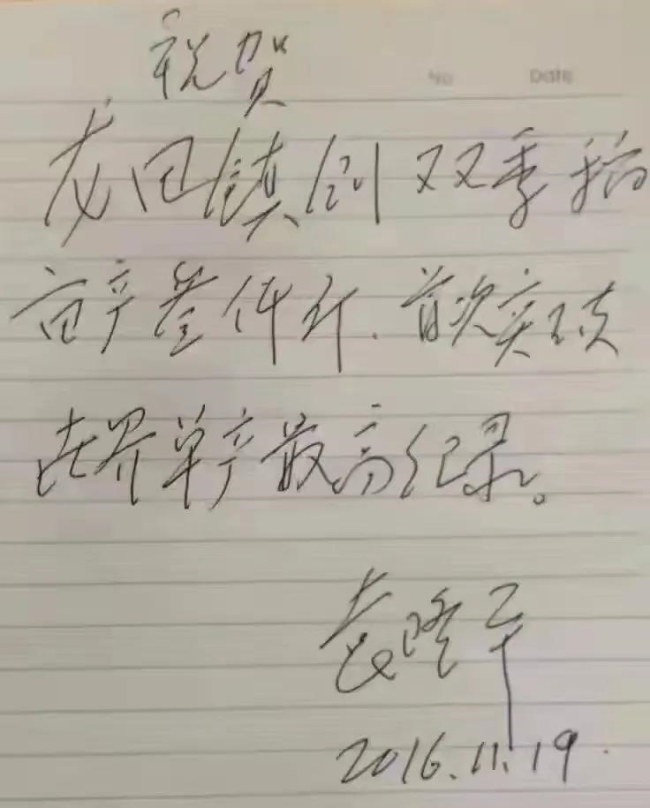 祝贺
No Date
龙田镇创双季稻
亩产叁仟斤.首次实现
世界单产最高纪录。
袁隆平
2016.11.19.